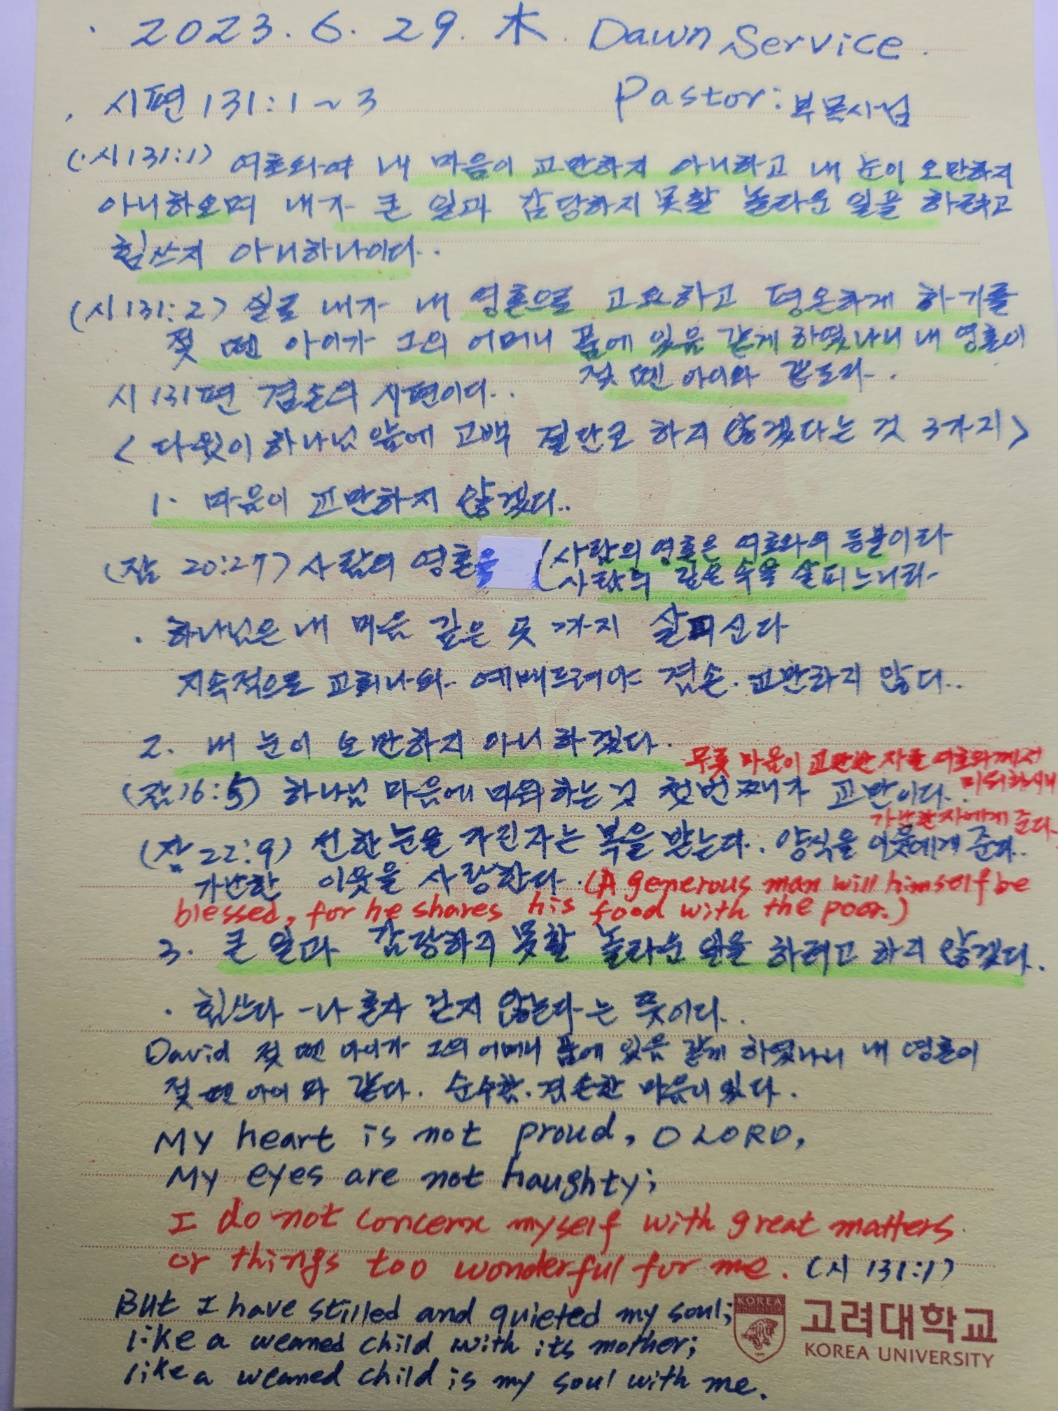 · 2023. 6. 29. 木. Dawn Service.
. 시편 131:1~3 Pastor: 부목사님
(·시131:1) 여호와여 내 마음이 교만하지 아니하고 내 눈이 오만하지
아니하오며 내가 큰 일과 감당하지 못할 놀라운 일을 하려고
힘쓰지 아니하나이다..
(시131:2) 실로 내가 내 영혼으로 고요하고 평온하게 하기를
젖 뗀 아이가 그의 어머니 품에 있음 같게 하였나니 내 영혼이
젖 뗀 아이와 같도다..
시 131편 겸손의 시편이다..
< 다윗이 하나님 앞에 고백 절단코 하지 않겠다는 것 3가지>
1. 마음이 교만하지 않겠다..
(잠 20:27) 사람의 영혼을 (사람의 영혼은 여호와의 등불이라
(사람의 깊은 속을 살피느니라
. 하나님은 내 마음 깊은 곳 까지 살피신다
지속적으로 교회나와 예배드려야 겸손. 교만하지 않다..
2. 내 눈이 오만하지 아니하겠다.
무릇 마음이 교만한 자를 여호와께서
미워하시나
(잠16:5) 하나님 마음에 미워하는 것 첫번째가 교만이다.
가난한자에게 준다.
(잠 22:9) 선한 눈을 가진자는 복을 받는다. 양식을 이웃에게 준다..
가난한 이웃을 사랑한다. (A generous man will himself be
blessed, for he shares his food with the poor.)
3. 큰 일과 감당하지 못할 놀라운 일을 하려고 하지 않겠다.
. 힘쓰다 - 나 혼자 걷지 않는다-는 뜻이다..
David 젖 뗀 아이가 그의 어머니 품에 있음 같게 하였나니 내 영혼이
젖 뗀 아이와 같다. 순수함. 겸손한 마음이 있다.
My heart is not proud, O LORD,
My eyes are not haughty;
I do not concern myself with great matters
or things too wonderful for me. (시 131:1)
But I have stilled and quieted my soul;
like a weaned child with its mother;
like a weaned child is my soul with me.
KOREA
고려대학교
KOREA UNIVERSITY